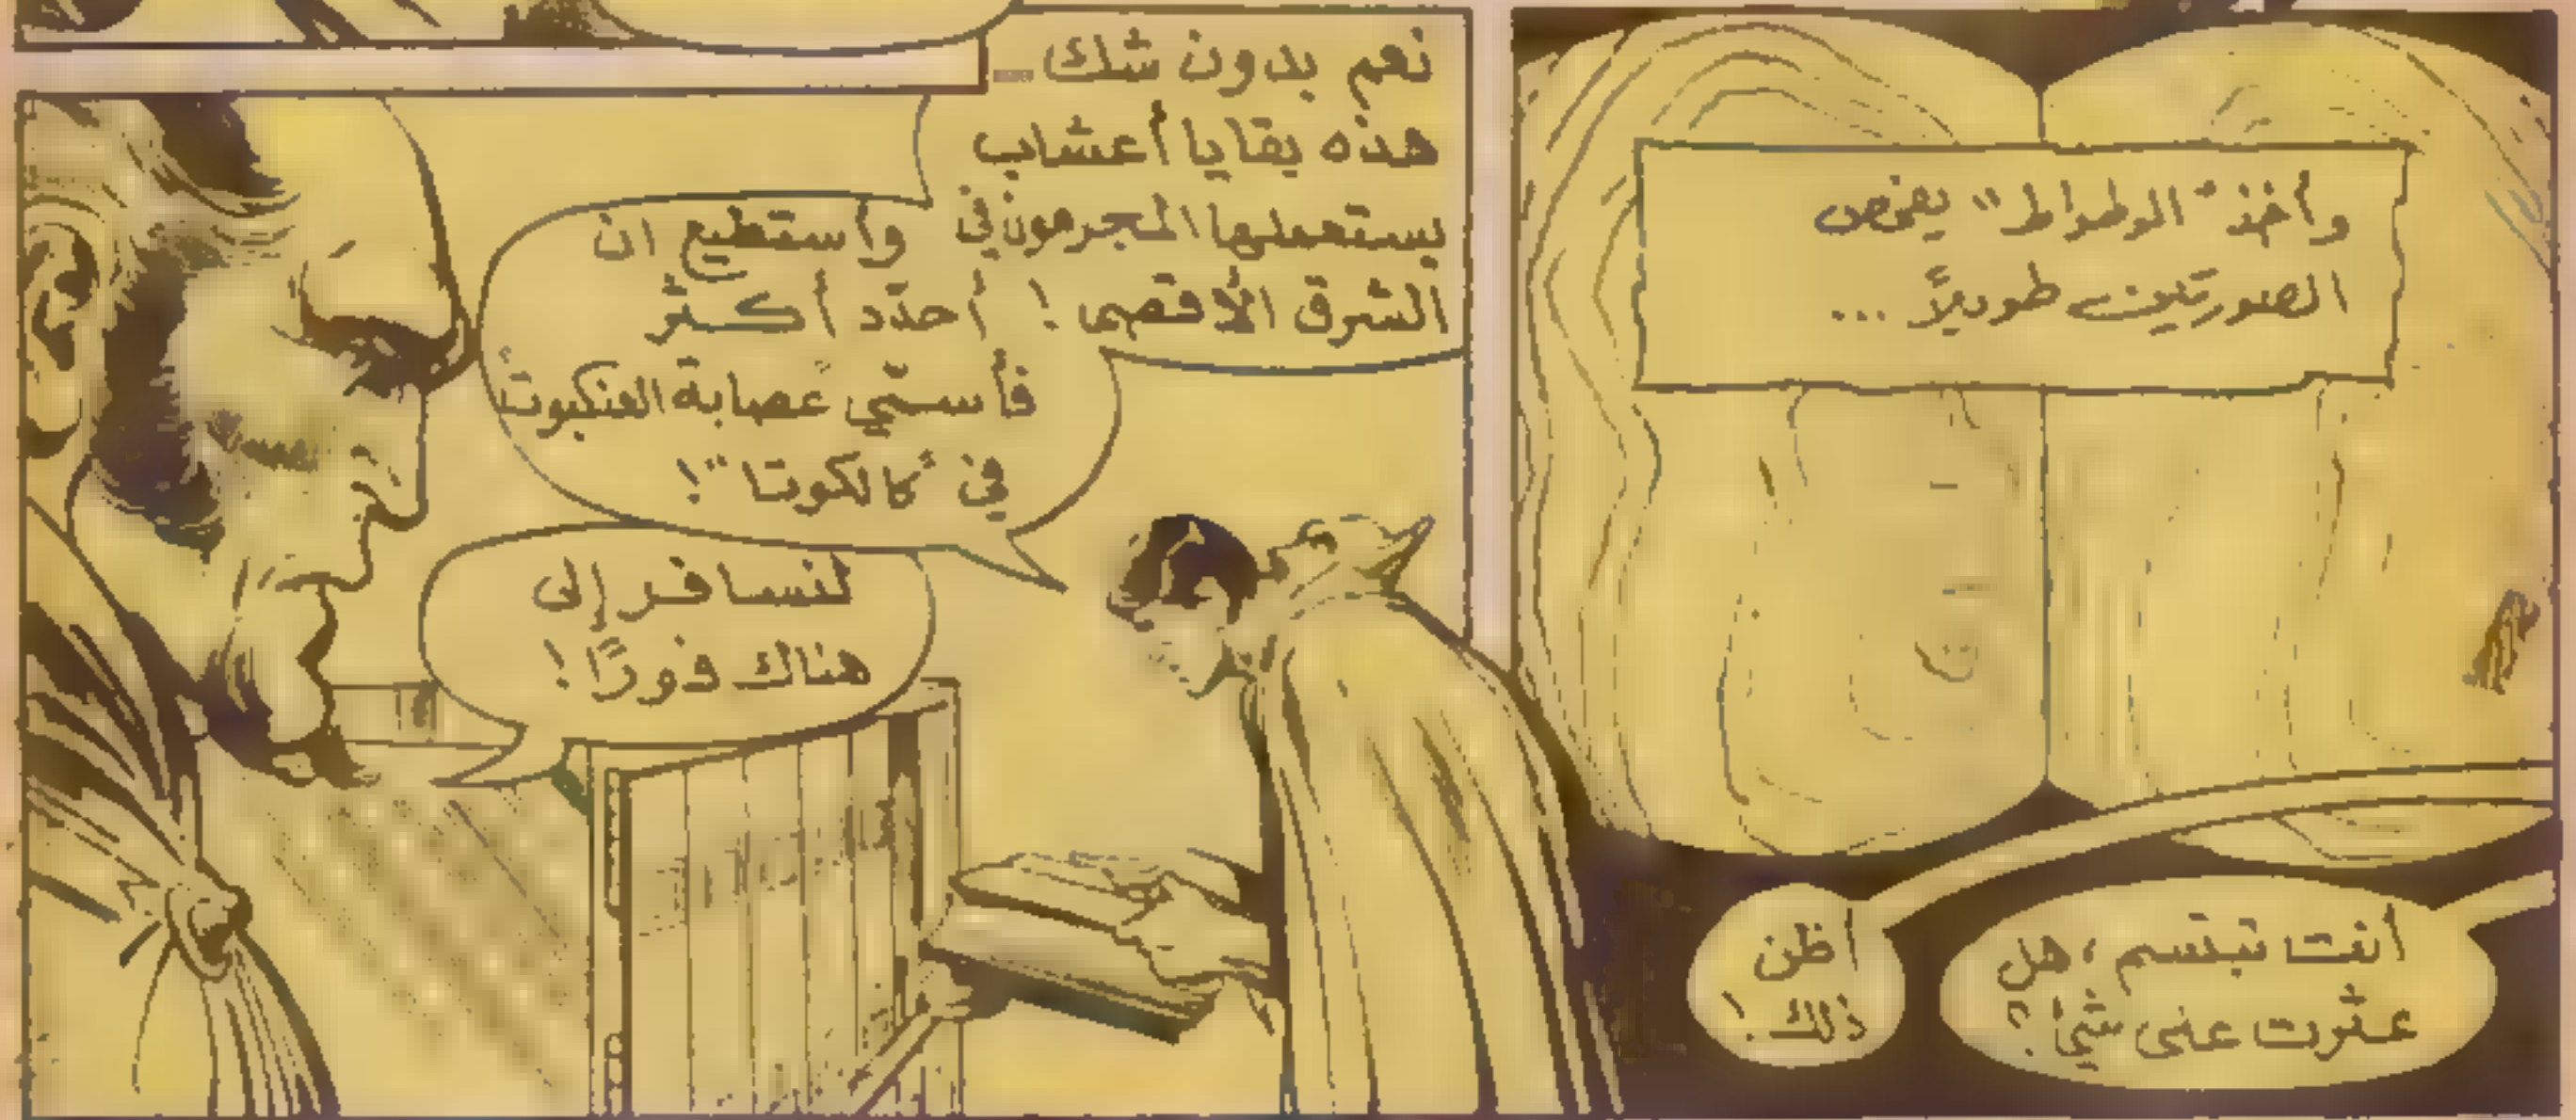 وأخذ "الوطواط" يفحص
الصورتين طويلاً ...
أنت تبتسم، هل
عثرت على شيء؟
أظن
ذلك!
نعم بدون شك
هذه بقايا أعشاب
يستعملها المجرمون في
الشرق الأقصى!
وأستطيع ان
أحدّد أكثر
فأسمّي عصابة العنكبوت
في "كالكوتا"!
لنسافر إلى
هناك فورًا!